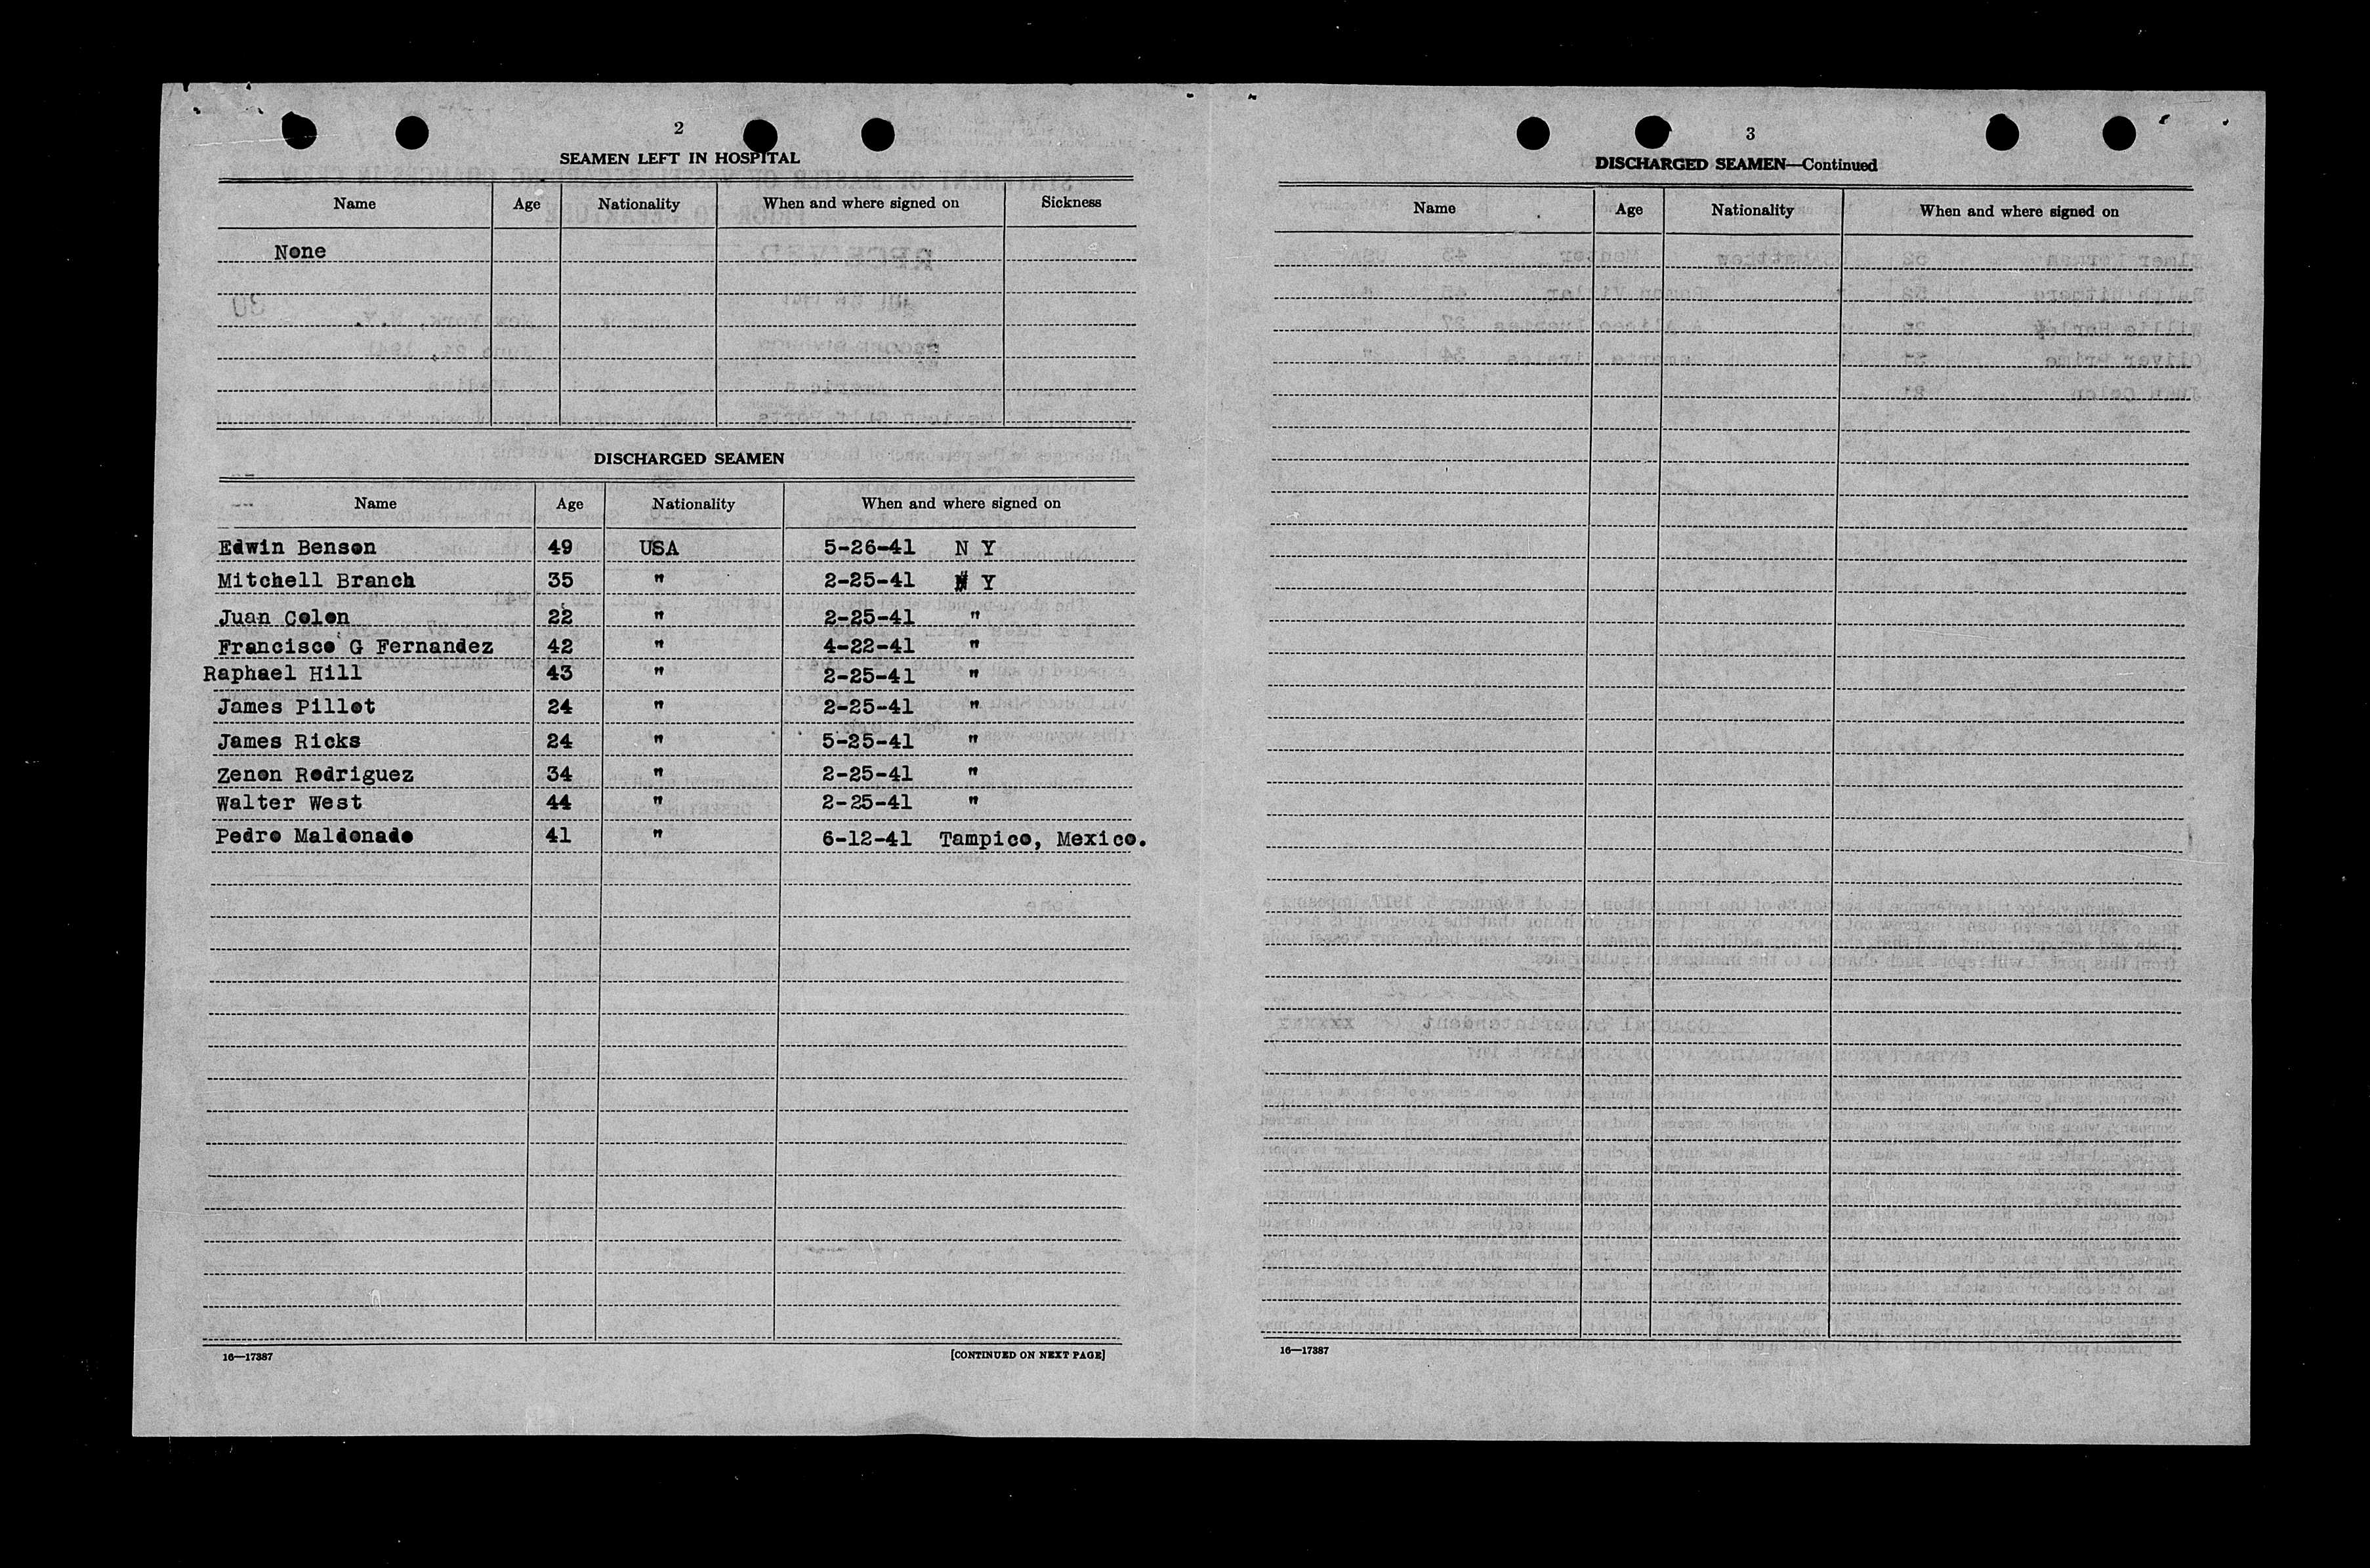 2
SEAMEN LEFT IN HOSPITAL
Name Age Nationality When and where signed on Sickness
None
DISCHARGED SEAMEN
Name Age Nationality When and where signed on
Edwin Benson 49 USA 5-26-41 N Y
Mitchell Branch 35 " 2-25-41 N Y
Juan Colon 22 " 2-25-41 "
Francisco G Fernandez 42 " 4-22-41 "
Raphael Hill 43 " 2-25-41 "
James Pillot 24 " 2-25-41 "
James Ricks 24 " 5-25-41 "
Zenon Rodriguez 34 " 2-25-41 "
Walter West 44 " 2-25-41 "
Pedro Maldonado 41 " 6-12-41 Tampico, Mexico.
16—17387 [CONTINUED ON NEXT PAGE]
3
DISCHARGED SEAMEN—Continued
Name Age Nationality When and where signed on
16—17387